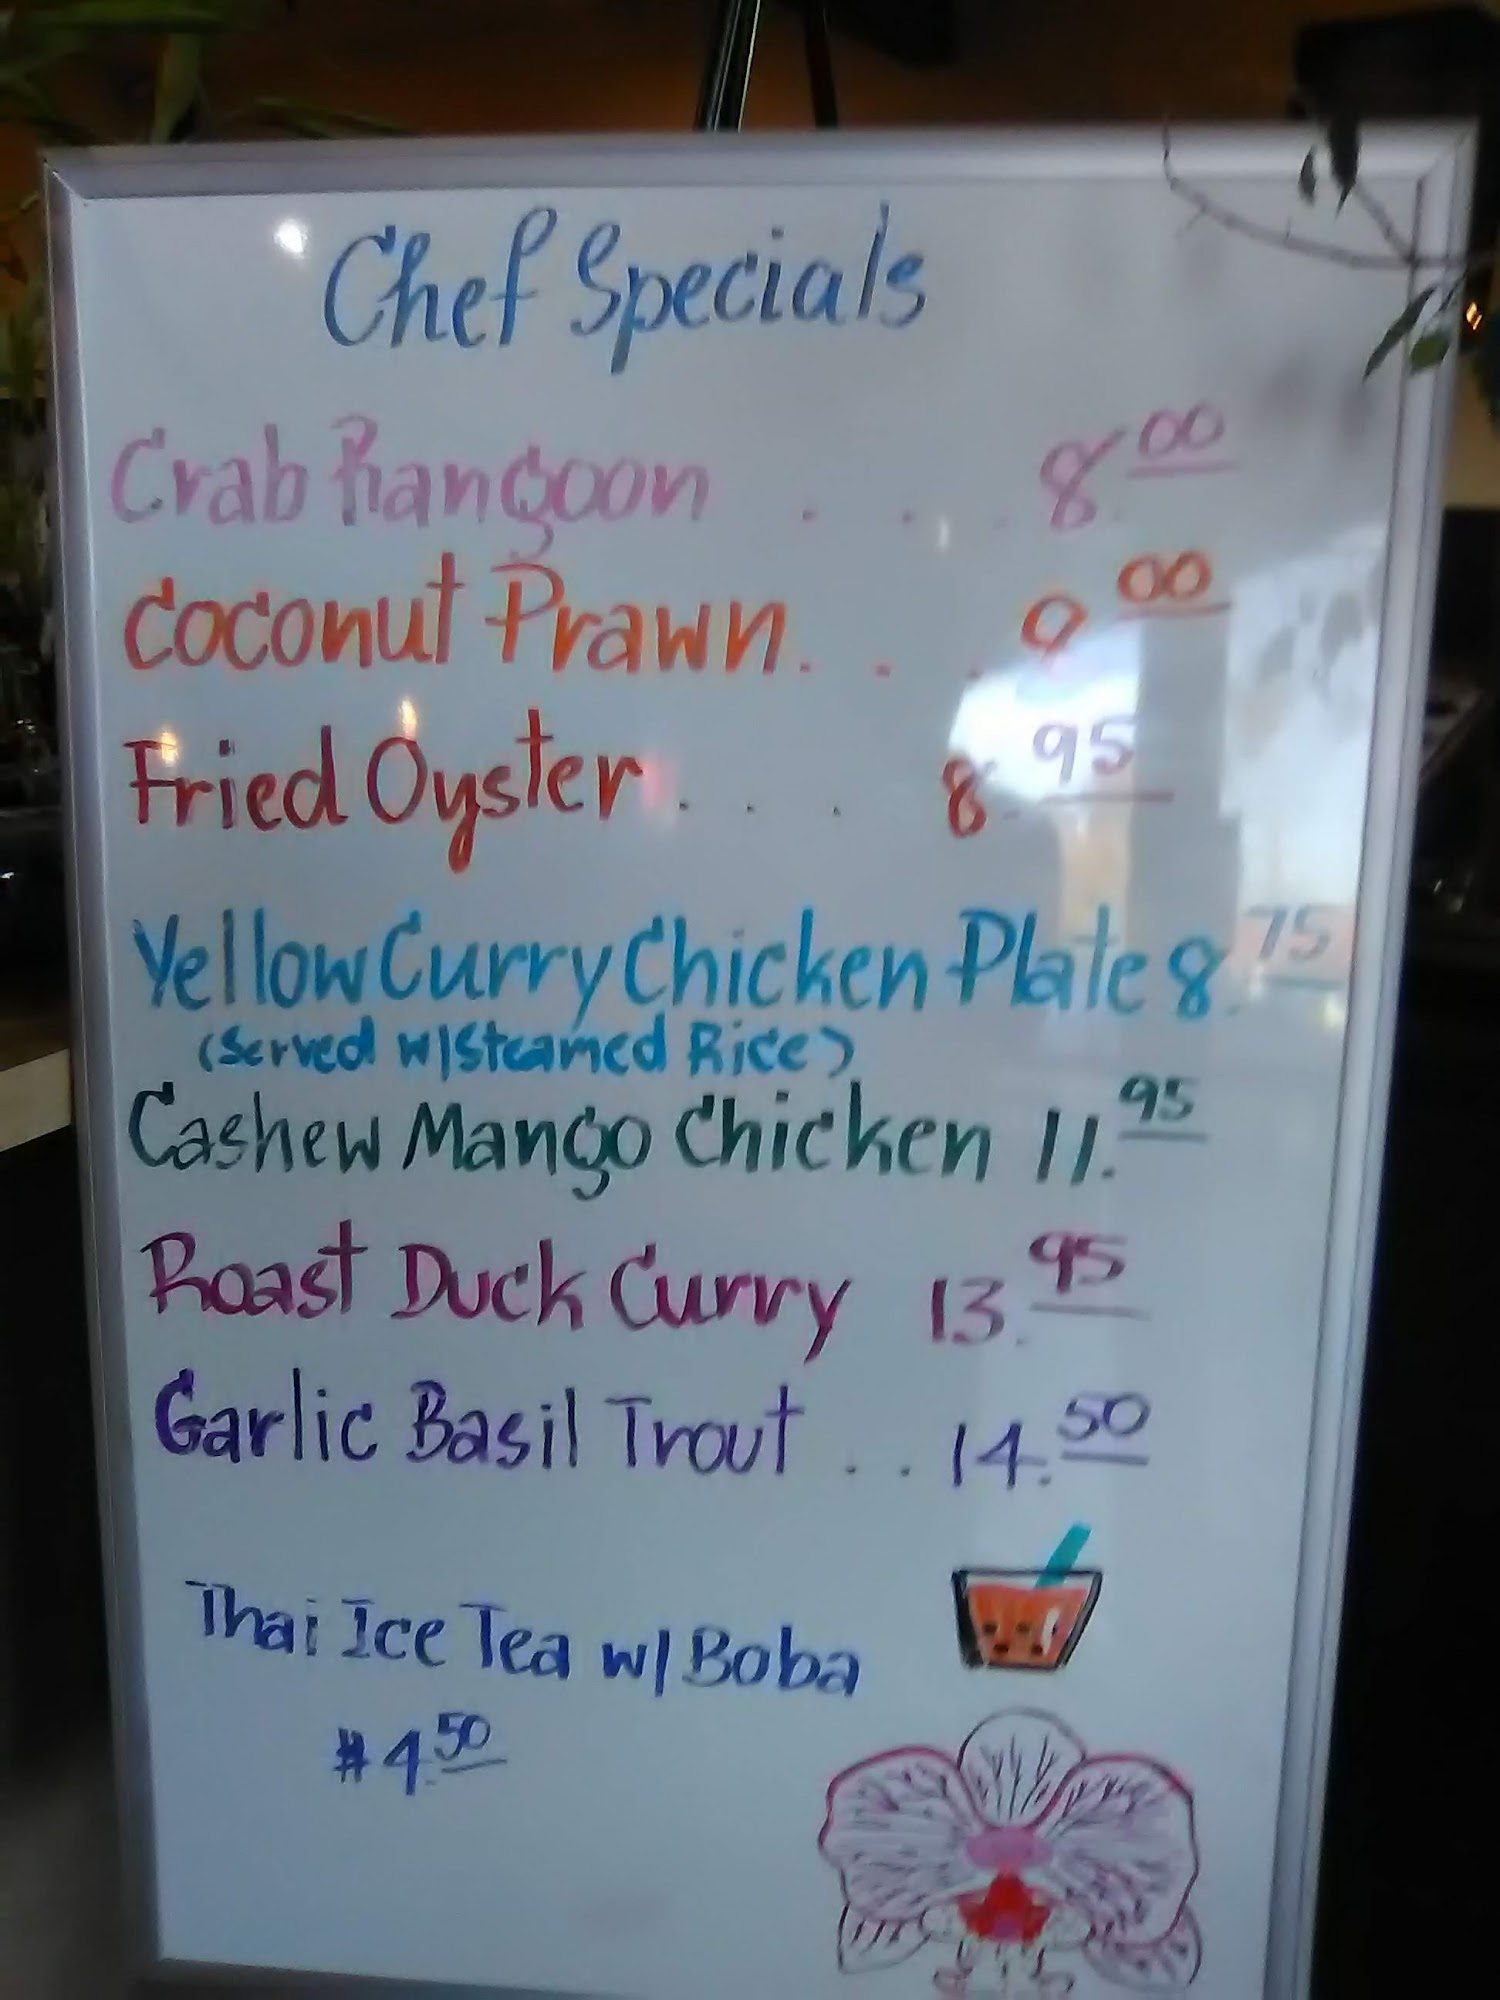 Chef Specials
Crab Rangoon . . . 8.00
Coconut Prawn . . . 9.00
Fried Oyster . . . 8.95
Yellow Curry Chicken Plate 8.75
(Served w/Steamed Rice)
Cashew Mango Chicken 11.95
Roast Duck Curry 13.95
Garlic Basil Trout . . 14.50
Thai Ice Tea w/ Boba
$4.50